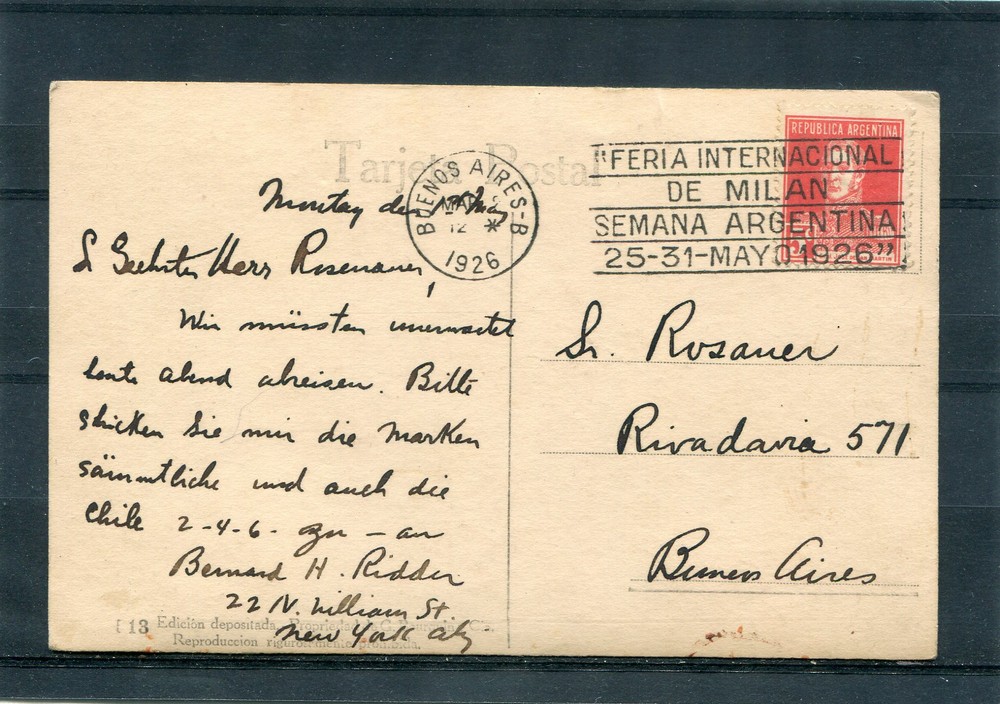 Tarjeta Postal
REPUBLICA ARGENTINA
BUENOS AIRES-B
12 *
1926
"FERIA INTERNACIONAL
DE MILAN
SEMANA ARGENTINA
25-31-MAYO 1926"
Montag den May
S Geehrter Herr Rosenauer,
Wir müssten unerwartet
heute abend abreisen. Bitte
schicken Sie mir die Marken
sämmtliche und auch die
Chile 2-4-6- zu - an
Bernard H. Ridder
22 N. William St.
New York City
Sr. Rosauer
Rivadavia 571
Buenos Aires
13 Edición depositada. Propiedad
Reproduccion rigurosamente prohibida.